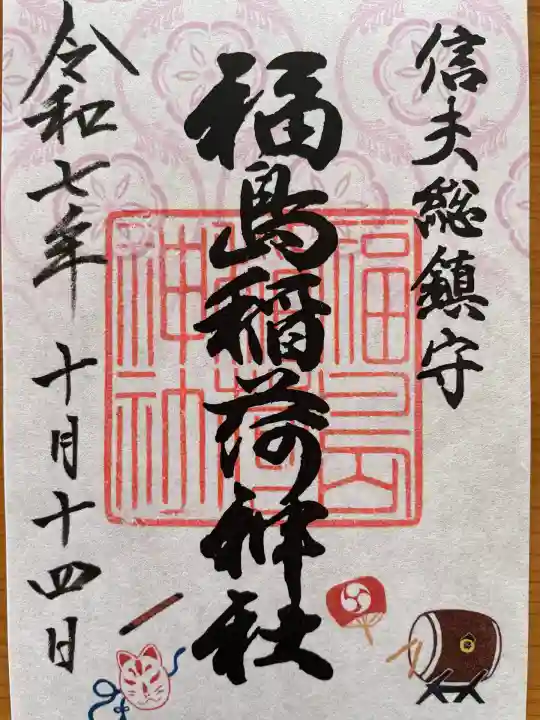 信夫総鎮守
福島稲荷神社
福島稲荷神社
令和七年十月十四日